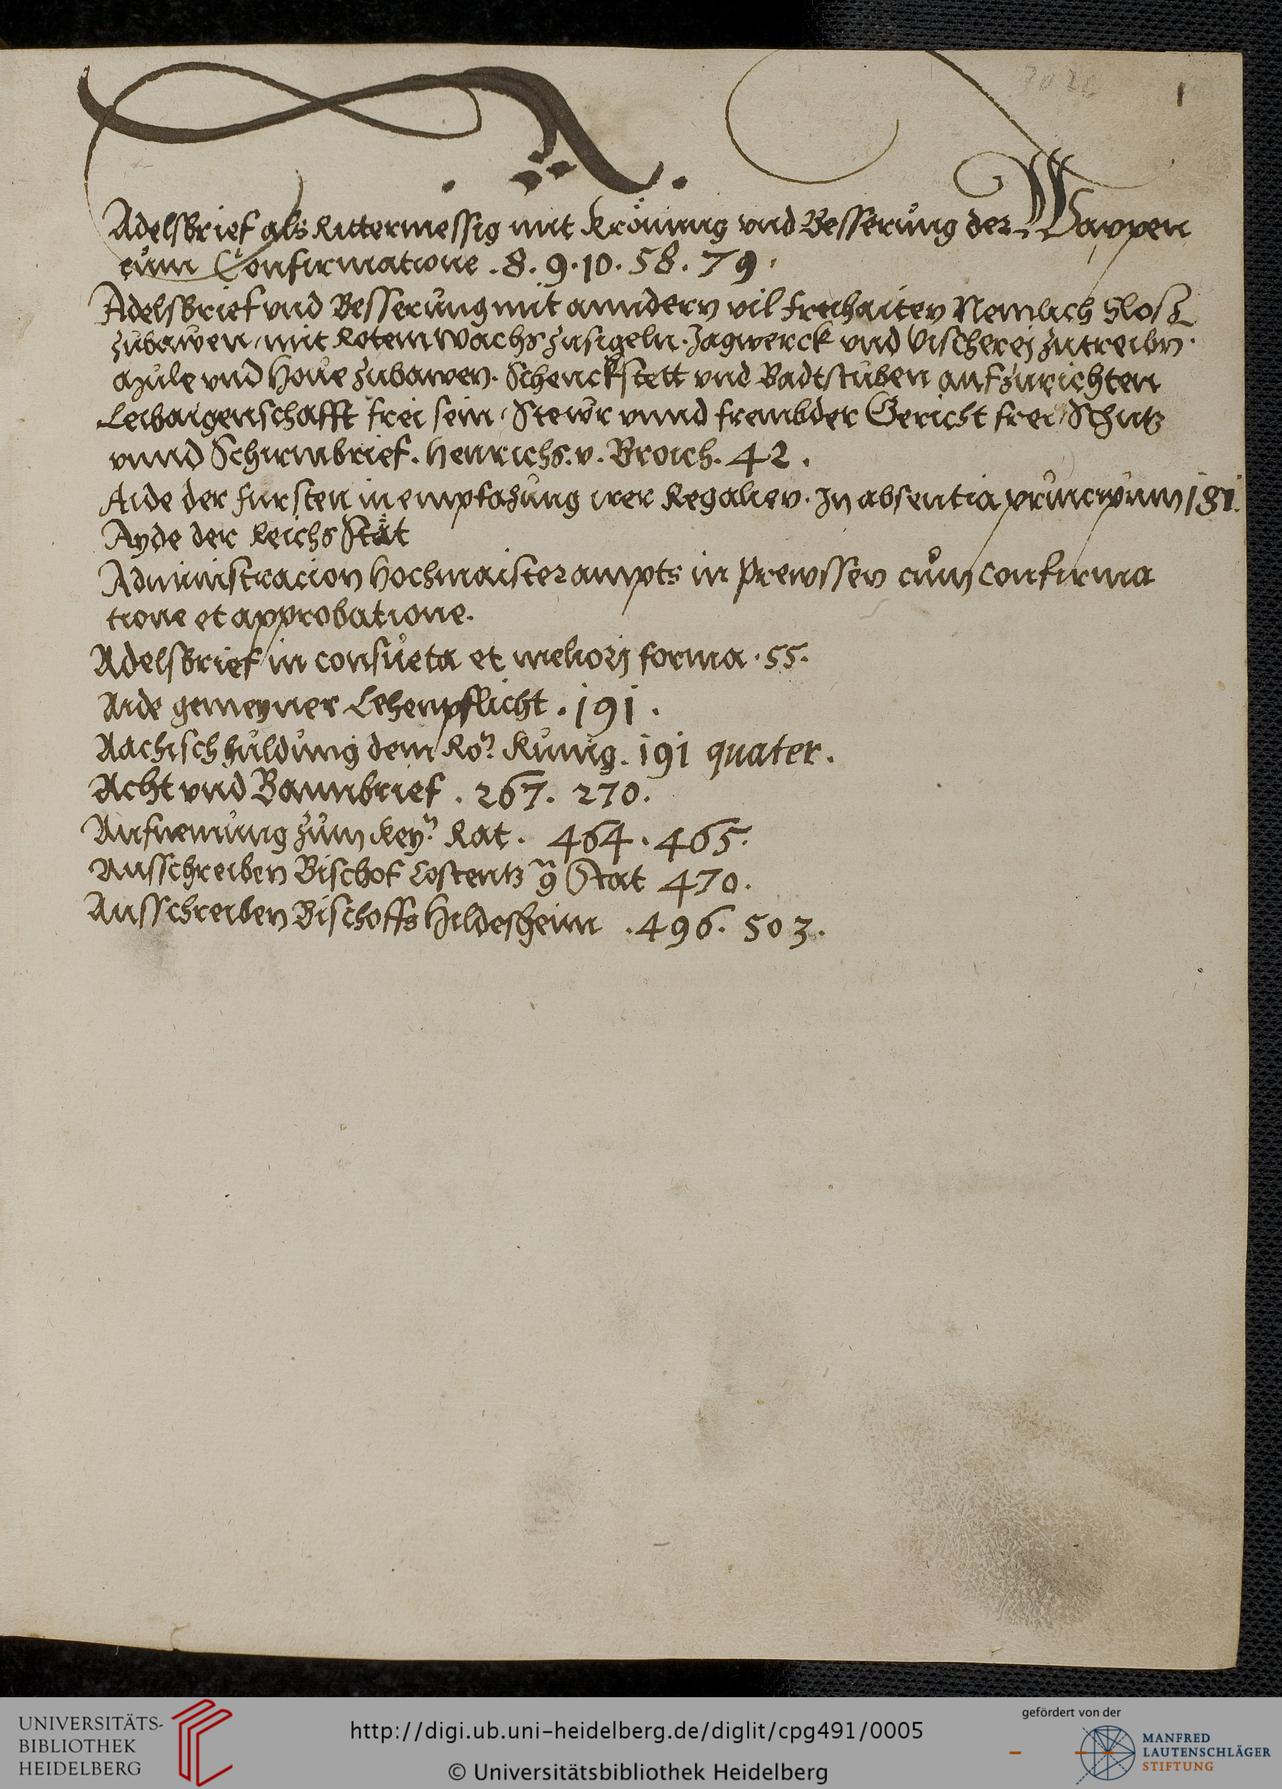 1
. A .
Adelsbrief als Rittermessig mit Krönung vnd Besserung der Wappen
cum Confirmatione . 8 . 9 . 10 . 58 . 79 .
Adelsbrief vnd Besserung mit anndern vil freihaiten Nemlich Slosz
zubawen mit Rotem Wachs zusigeln. Jagwerck vnd Vischerej zutreibn.
Mule vnd Houe zubawen. Schenckstett vnd Badtstuben aufzurichten
Leibaigenschafft frei sein, Stewr vnnd frembder Gericht frei, Schutz
vnnd Schirmbrief. Henrichs. v. Broich. 42 .
Aide der fursten in empfahung irer Regalien. In absentia principum 181.
Ayde der Reichs Stät
Administracion Hochmaister ampts in Prewssen cum confirma
tione et approbatione.
Adelsbrief in consueta et meliorj forma . 55 .
Aide gemeyner Lehenpflicht . 191 .
Aachisch huldung dem Ro. Kunig. 191 quater .
Acht vnd Bannbrief . 267 . 270 .
Aufnemung zum Key. Rat . 464 . 465 .
Ausschreiben Bischof Costentz Stat 470 .
Ausschreiben Bischoffs Hildesheim . 496 . 503 .
UNIVERSITÄTS-
BIBLIOTHEK
HEIDELBERG
http://digi.ub.uni-heidelberg.de/diglit/cpg491/0005
© Universitätsbibliothek Heidelberg
gefördert von der
MANFRED
LAUTENSCHLÄGER
STIFTUNG